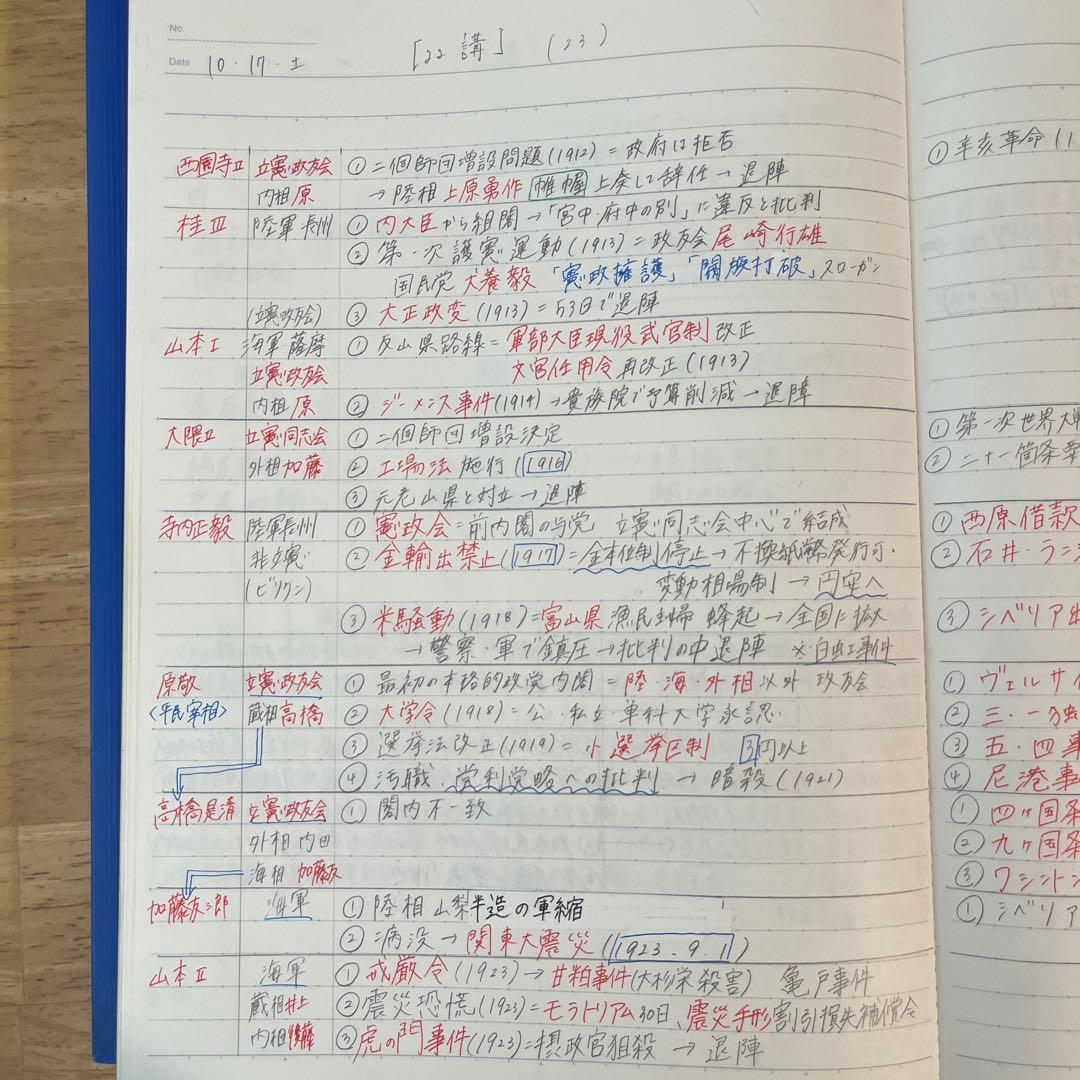 No.
Date 10・17・土
[22 講] (23)
西園寺Ⅱ 立憲政友会 ① 二個師団増設問題(1912)=政府は拒否
内相 原 → 陸相 上原勇作 帷幄 上奏して辞任 → 退陣
桂Ⅲ 陸軍 長州 ① 内大臣から組閣→「宮中・府中の別」に違反と批判
② 第一次 護憲 運動(1913)=政友会 尾崎行雄
国民党 犬養毅 「憲政擁護」「閥族打破」スローガン
(立憲政友会) ③ 大正政変(1913)=53日で退陣
山本Ⅰ 海軍 薩摩 ① 反山県路線=軍部大臣現役武官制 改正
立憲政友会 文官任用令 再改正(1913)
内相 原 ② ジーメンス事件(1914)→貴族院で予算削減→退陣
大隈Ⅱ 立憲同志会 ① 二個師団増設決定
外相 加藤 ② 工場法 施行(1916)
③ 元老山県と対立→退陣
寺内正毅 陸軍長州 ① 憲政会=前内閣の与党 立憲同志会中心で結成
非立憲 ② 金輸出禁止(1917)=金本位制停止→不換紙幣発行可・
(ビリケン) 変動相場制 → 円安へ
③ 米騒動(1918)=富山県 漁民主婦 蜂起→全国に拡大
→警察・軍で鎮圧→批判の中退陣 ※白虹事件
原敬 立憲政友会 ① 最初の本格的政党内閣=陸・海・外相以外 政友会
〈平民宰相〉 蔵相 高橋 ② 大学令(1918)=公・私立・単科大学承認
③ 選挙法改正(1919)=小選挙区制 3円以上
④ 汚職・党利党略への批判 → 暗殺(1921)
高橋是清 立憲政友会 ① 閣内不一致
外相 内田
海相 加藤友
加藤友三郎 海軍 ① 陸相 山梨半造の軍縮
② 病没→関東大震災(1923.9.1)
山本Ⅱ 海軍 ① 戒厳令(1923)→甘粕事件(大杉栄殺害) 亀戸事件
蔵相井上 ② 震災恐慌(1923)=モラトリアム30日、震災手形割引損失補償令
内相後藤 ③ 虎の門事件(1923)=摂政宮狙殺 → 退陣
① 辛亥革命(1
① 第一次世界大
② 二十一箇条
① 西原借款
② 石井・ラン
③ シベリア出
① ヴェルサイ
② 三・一独
③ 五・四事
④ 尼港事
① 四ヶ国条
② 九ヶ国条
③ ワシントン
① シベリア